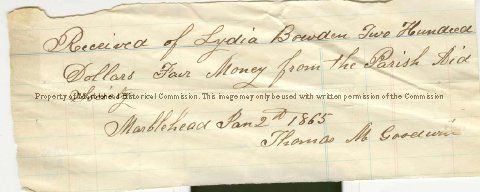 Received of Lydia Bowden Two Hundred
Dollars Fair Money from the Parish Aid
Property of Historical Commission. This image may only be used with written permission of the Commission
Marblehead Jan 2d 1865
Thomas M Goodwin